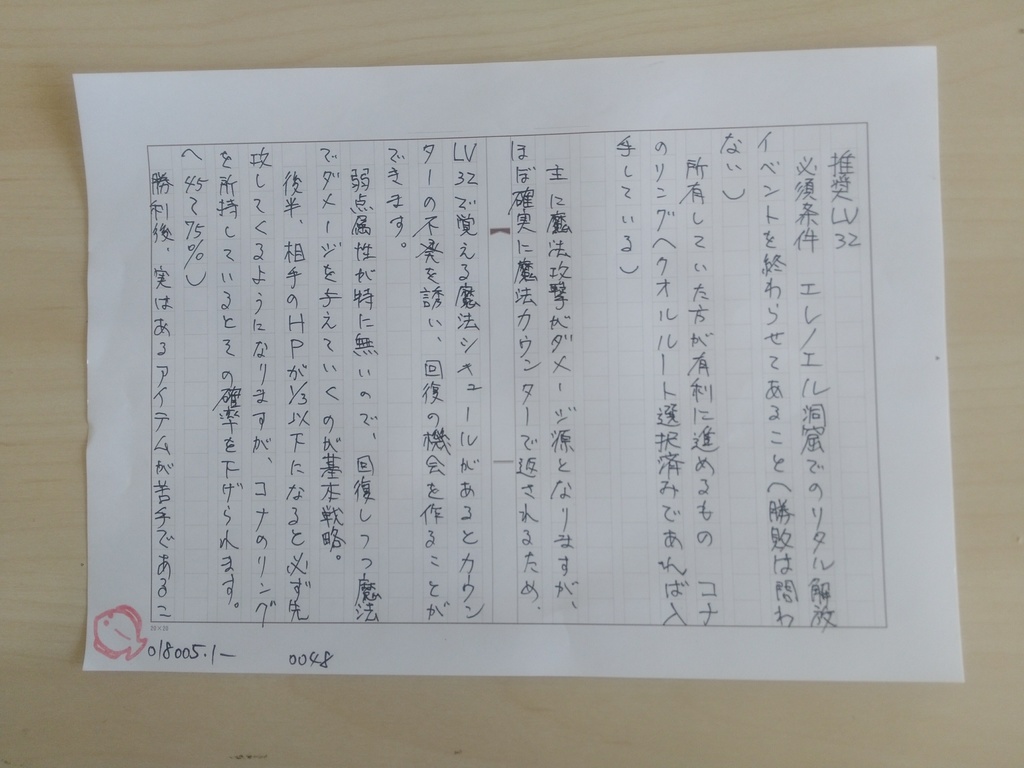 推奨LV32
必須条件 エレノエル洞窟でのリタル解放
イベントを終わらせてあること(勝敗は問わ
ない)
所有していた方が有利に進めるもの コナ
のリング(クオルルート選択済みであれば入
手している)
主に魔法攻撃がダメージ源となりますが、
ほぼ確実に魔法カウンターで返されるため、
LV32で覚える魔法シキュールがあるとカウン
ターの不発を誘い、回復の機会を作ることが
できます。
弱点属性が特に無いので、回復しつつ魔法
でダメージを与えていくのが基本戦略。
後半、相手のHPが1/3以下になると必ず先
攻してくるようになりますが、コナのリング
を所持しているとその確率を下げられます。
(45〜75%)
勝利後、実はあるアイテムが苦手であるこ
20×20
018005.1-
0048